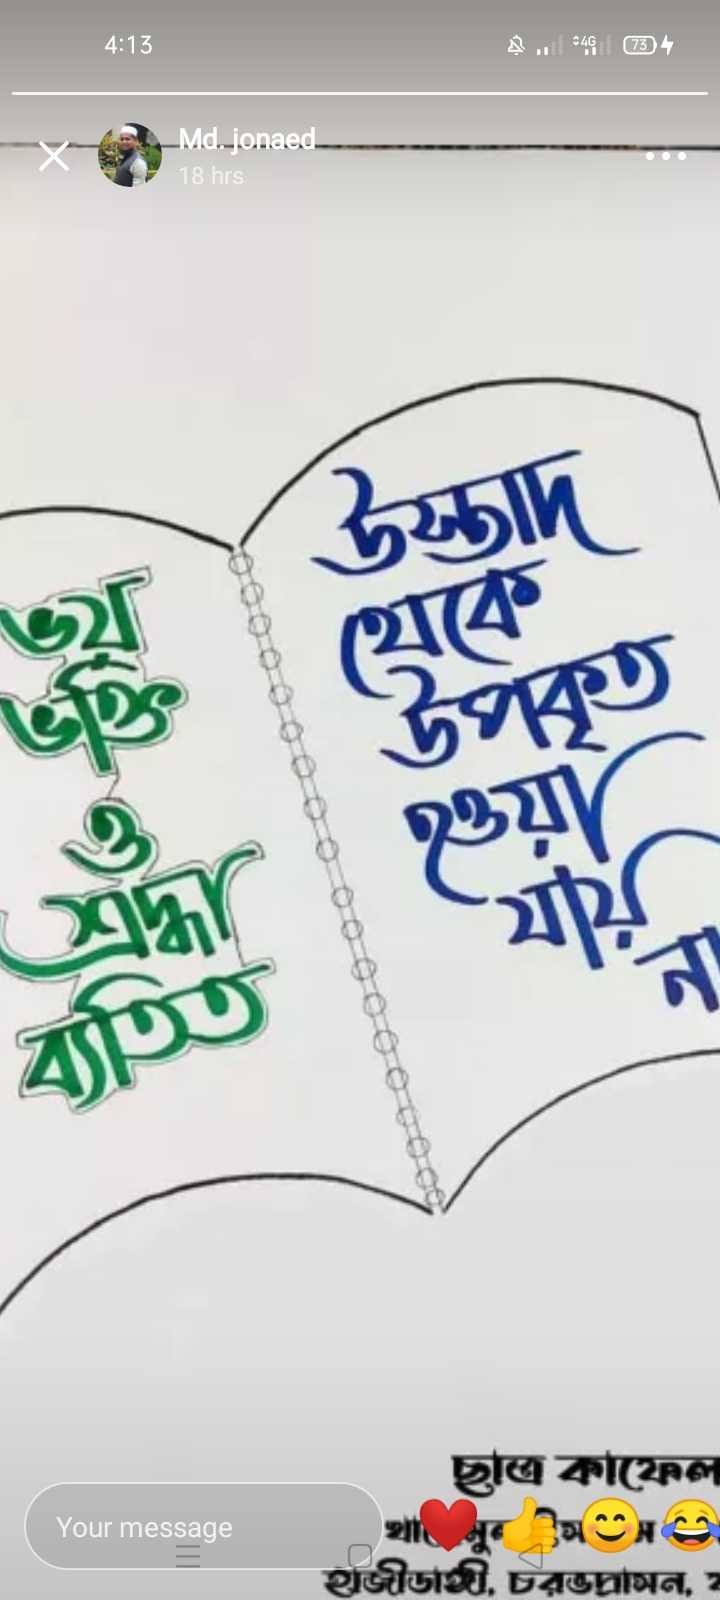 4:13
4G
73
Md. jonaed
18 hrs
ভয়
ভক্তি
ও
শ্রদ্ধা
ব্যতিত
উস্তাদ
থেকে
উপকৃত
হওয়া
যায়
না
ছাত্র
Your message
হাজীডাঙ্গী, চরভদ্রাসন,